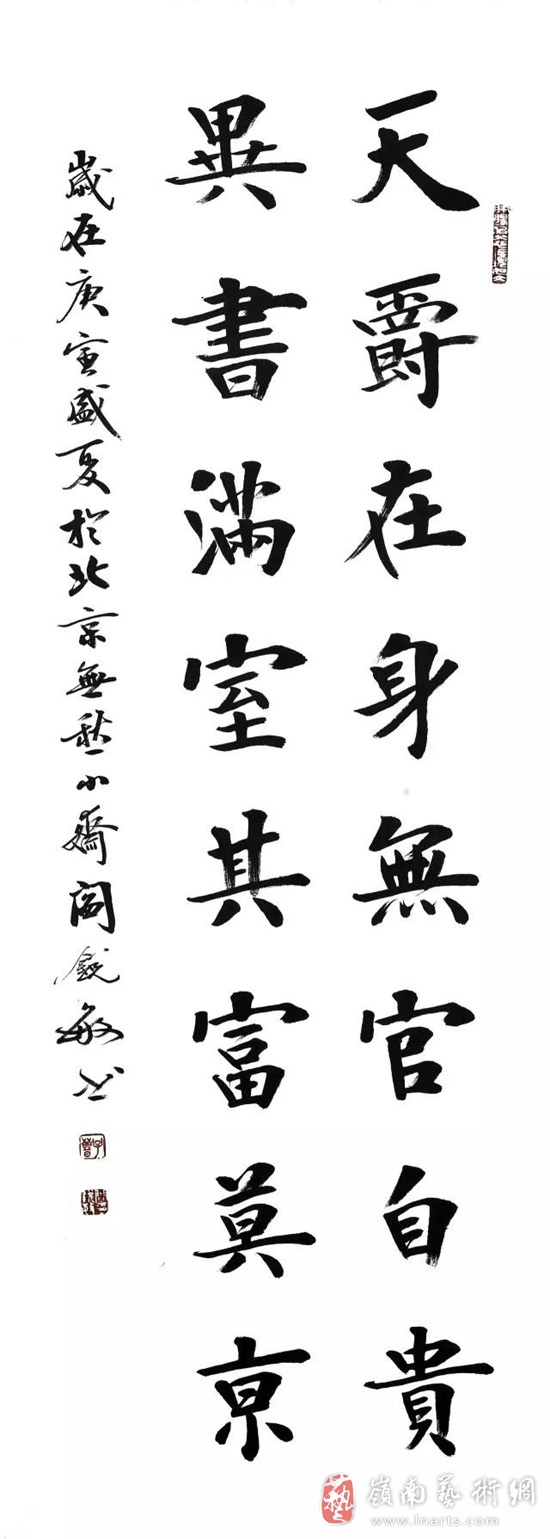 天爵在身無官自貴
異書滿室其富莫京
歲在庚寅盛夏於北京無愁小齋閻銳敏书
嶺南藝術網
www.lnarts.com